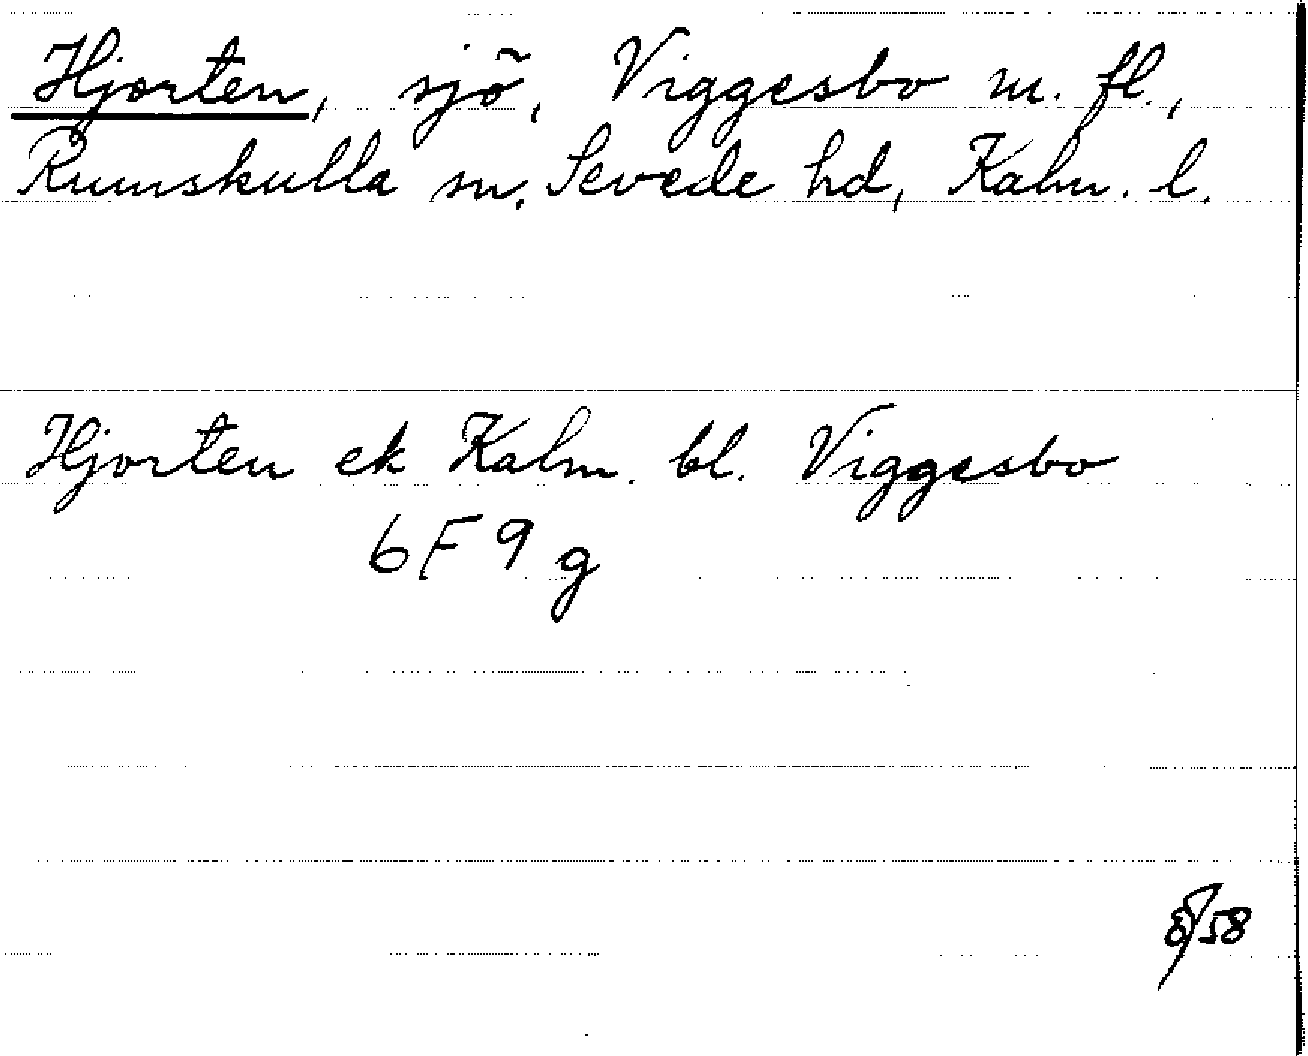 Hjorten, sjö, Viggesbo m. fl.,
Rumskulla sn. Sevede hd, Kalm. l.
Hjorten ek Kalm. bl. Viggesbo
6F 9 g
8/58